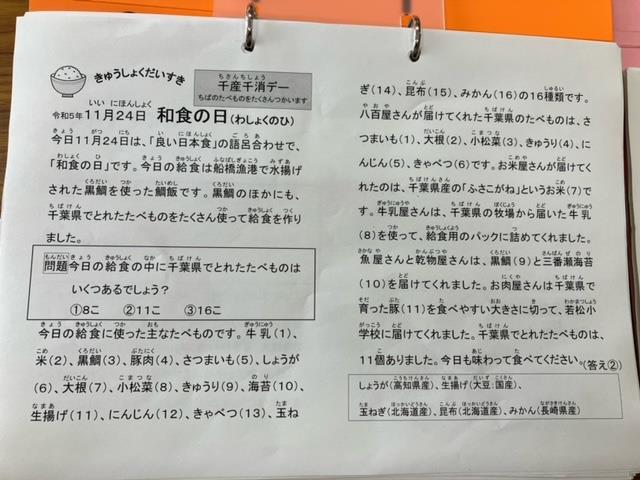 きゅうしょくだいすき
千産千消デー
ちばのたべものをたくさんつかいます
令和5年11月24日 和食の日(わしょくのひ)
今日11月24日は、「良い日本食」の語呂合わせで、
「和食の日」です。今日の給食は船橋漁港で水揚げ
された黒鯛を使った鯛飯です。黒鯛のほかにも、
千葉県でとれたたべものをたくさん使って給食を作り
ました。
問題 今日の給食の中に千葉県でとれたたべものは
いくつあるでしょう?
①8こ ②11こ ③16こ
今日の給食に使った主なたべものです。牛乳(1)、
米(2)、黒鯛(3)、豚肉(4)、さつまいも(5)、しょうが
(6)、大根(7)、小松菜(8)、きゅうり(9)、海苔(10)、
生揚げ(11)、にんじん(12)、きゃべつ(13)、玉ね
ぎ(14)、昆布(15)、みかん(16)の16種類です。
八百屋さんが届けてくれた千葉県のたべものは、さ
つまいも(1)、大根(2)、小松菜(3)、きゅうり(4)、に
んじん(5)、きゃべつ(6)です。お米屋さんが届けてく
れたのは、千葉県産の「ふさこがね」というお米(7)で
す。牛乳屋さんは、千葉県の牧場から届いた牛乳
(8)を使って、給食用のパックに詰めてくれました。
魚屋さんと乾物屋さんは、黒鯛(9)と三番瀬海苔
(10)を届けてくれました。お肉屋さんは千葉県で
育った豚(11)を食べやすい大きさに切って、若松小
学校に届けてくれました。千葉県でとれたたべものは、
11個ありました。今日も味わって食べてください。(答え②)
しょうが(高知県産)、生揚げ(大豆:国産)、
玉ねぎ(北海道産)、昆布(北海道産)、みかん(長崎県産)